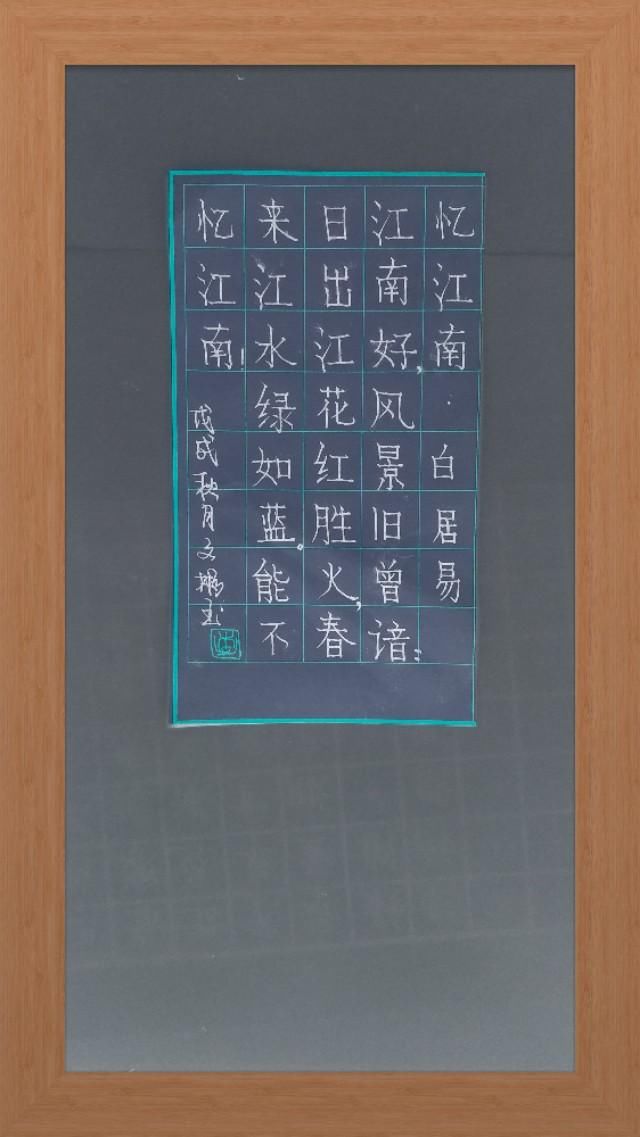 忆江南·白居易
江南好,风景旧曾谙;
日出江花红胜火,春
来江水绿如蓝。能不
忆江南!
戊戌秋月文